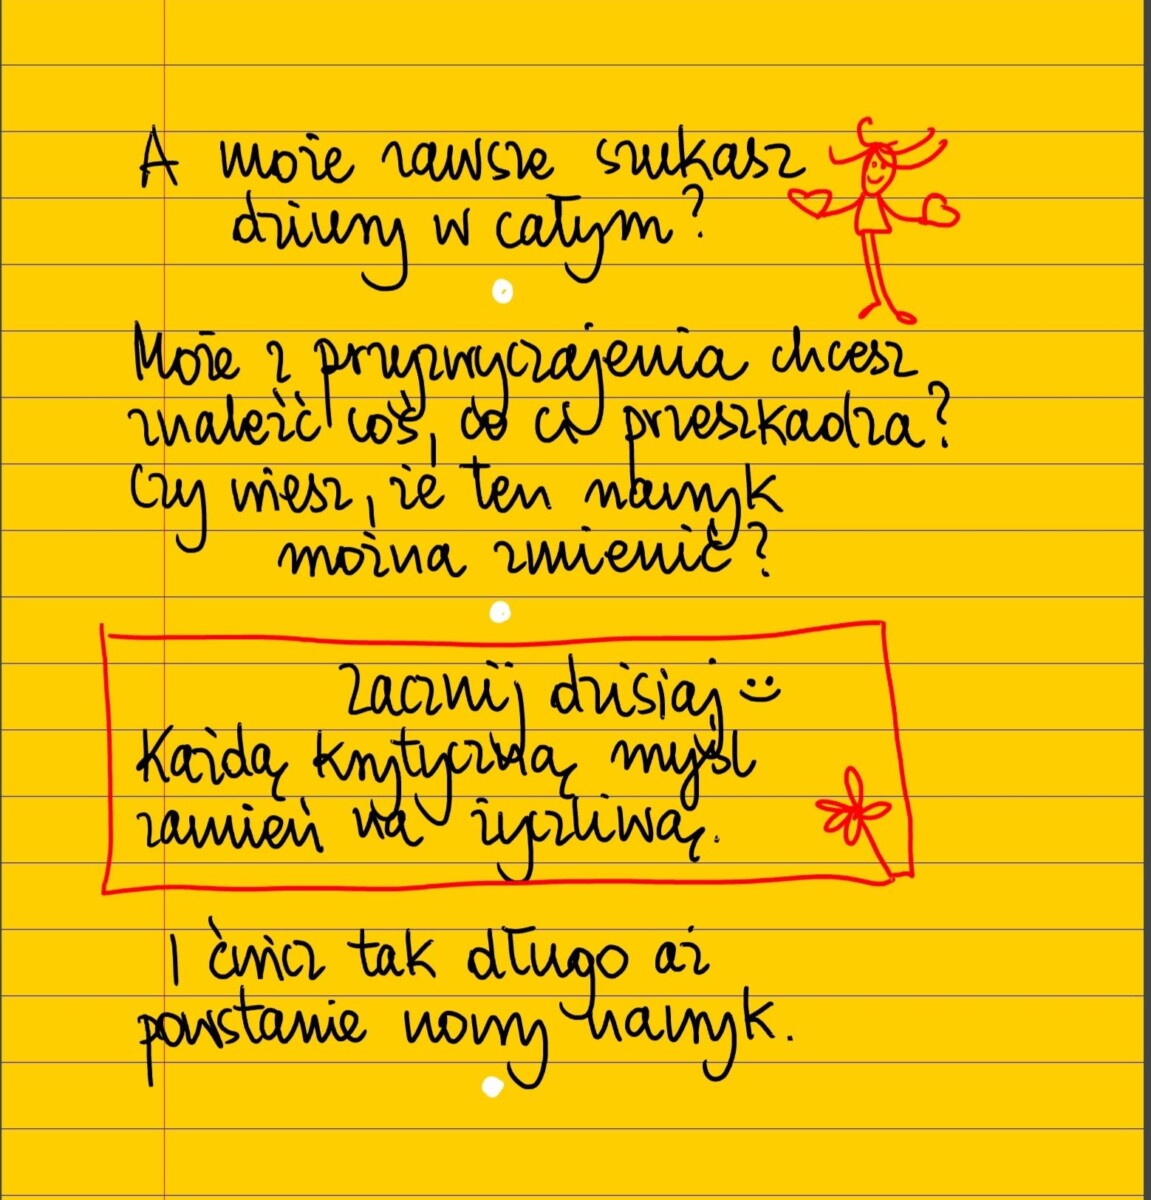 A może zawsze szukasz
dziury w całym?
Może z przyzwyczajenia chcesz
znaleźć coś, co ci przeszkadza?
Czy wiesz, że ten nawyk
można zmienić?
Zacznij dzisiaj :)
Każdą krytyczną myśl
zamień na życzliwą.
I ćwicz tak długo aż
powstanie nowy nawyk.